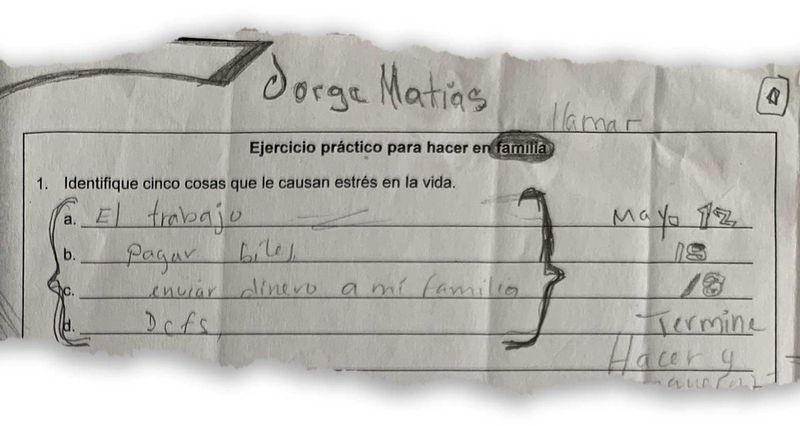 Jorge Matias
llamar
Ejercicio práctico para hacer en familia
1. Identifique cinco cosas que le causan estrés en la vida.
a. El trabajo Mayo 12
b. pagar biles 15
c. enviar dinero a mi familia 18
d. Dcfs, Termine
Hacer y